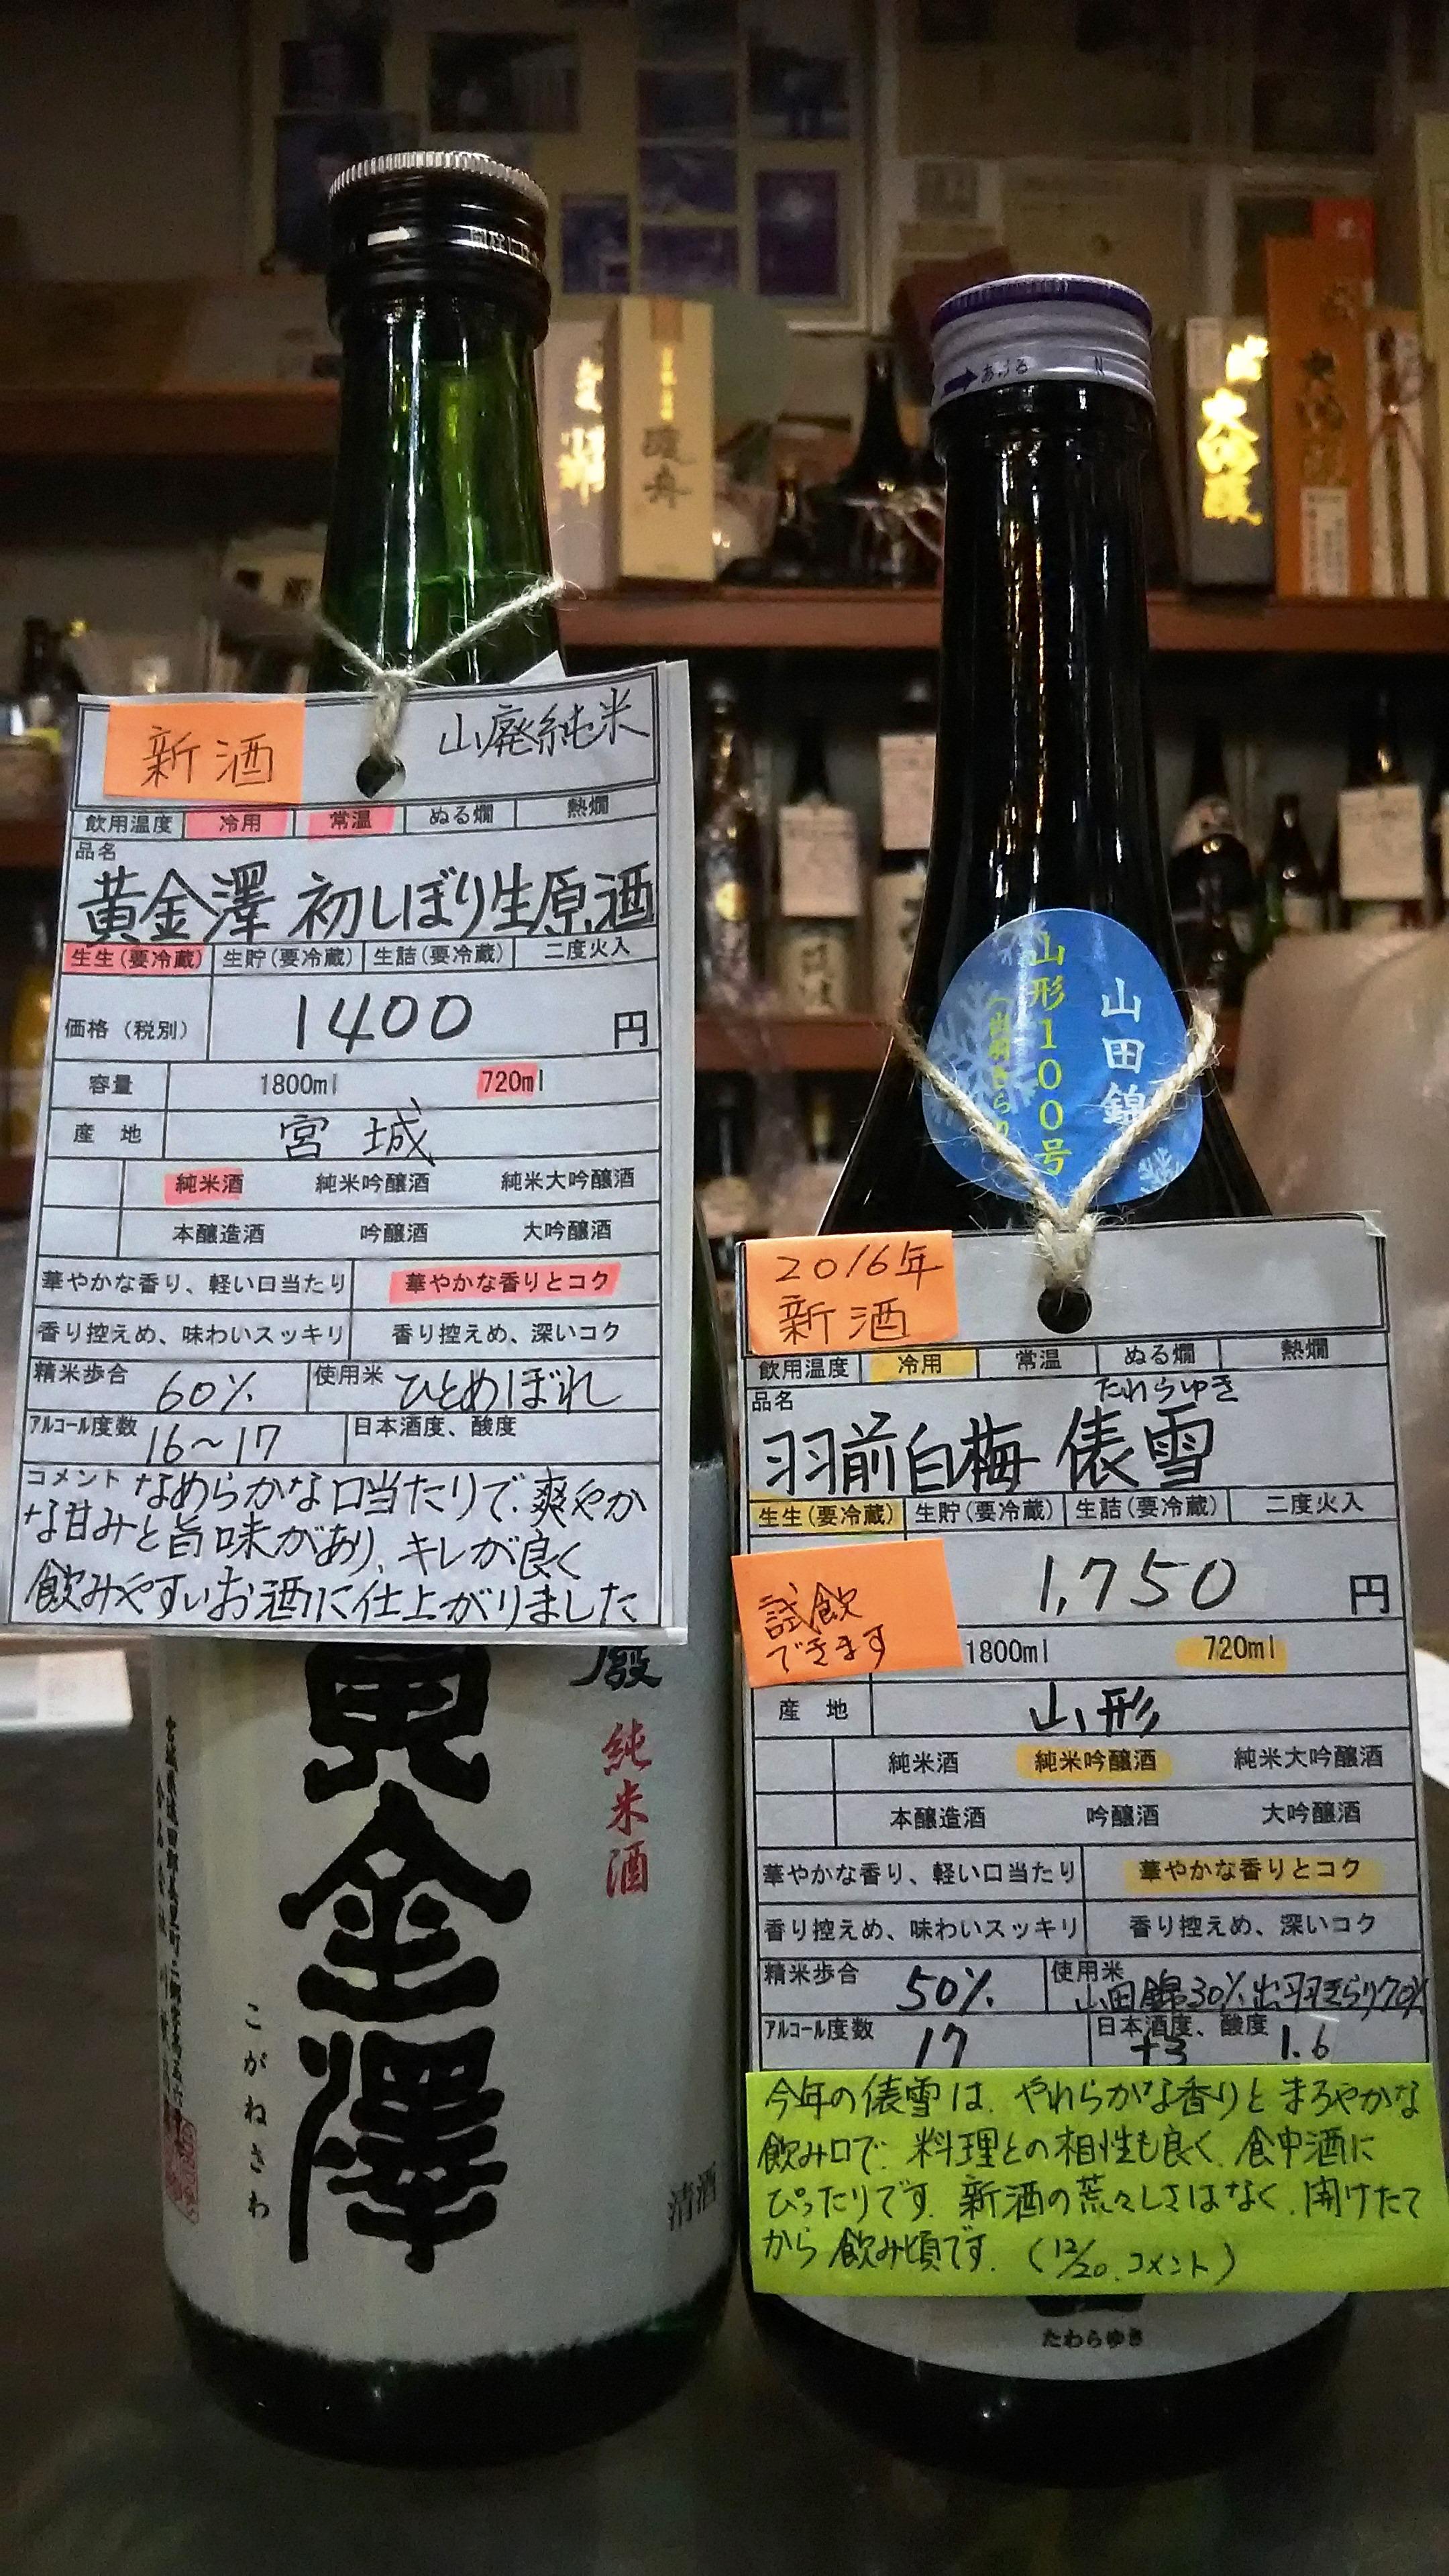 新酒
山廃純米
飲用温度 冷用 常温 ぬる燗 熱燗
品名
黄金澤 初しぼり生原酒
生生(要冷蔵) 生貯(要冷蔵) 生詰(要冷蔵) 二度火入
価格（税別） 1400 円
容量 1800ml 720ml
産地 宮城
純米酒 純米吟醸酒 純米大吟醸酒
本醸造酒 吟醸酒 大吟醸酒
華やかな香り、軽い口当たり 華やかな香りとコク
香り控えめ、味わいスッキリ 香り控えめ、深いコク
精米歩合 60% 使用米 ひとめぼれ
アルコール度数 16～17 日本酒度、酸度
コメント なめらかな口当たりで、爽やか
な甘みと旨味があり、キレが良く
飲みやすいお酒に仕上がりました
廃
純米酒
黄金澤
こがねさわ
清酒
あける
山田錦
山形100号
2016年
新酒
飲用温度 冷用 常温 ぬる燗 熱燗
品名
たわらゆき
羽前白梅 俵雪
生生(要冷蔵) 生貯(要冷蔵) 生詰(要冷蔵) 二度火入
試飲
できます
1,750 円
1800ml 720ml
産地 山形
純米酒 純米吟醸酒 純米大吟醸酒
本醸造酒 吟醸酒 大吟醸酒
華やかな香り、軽い口当たり 華やかな香りとコク
香り控えめ、味わいスッキリ 香り控えめ、深いコク
精米歩合 50% 使用米 山田錦30%出羽きらり70%
アルコール度数 17 日本酒度、酸度 +3 1.6
今年の俵雪は、やわらかな香りとまろやかな
飲み口で、料理との相性も良く、食中酒に
ぴったりです。新酒の荒々しさはなく、開けたて
から飲み頃です。(12/20.コメント)
たわらゆき